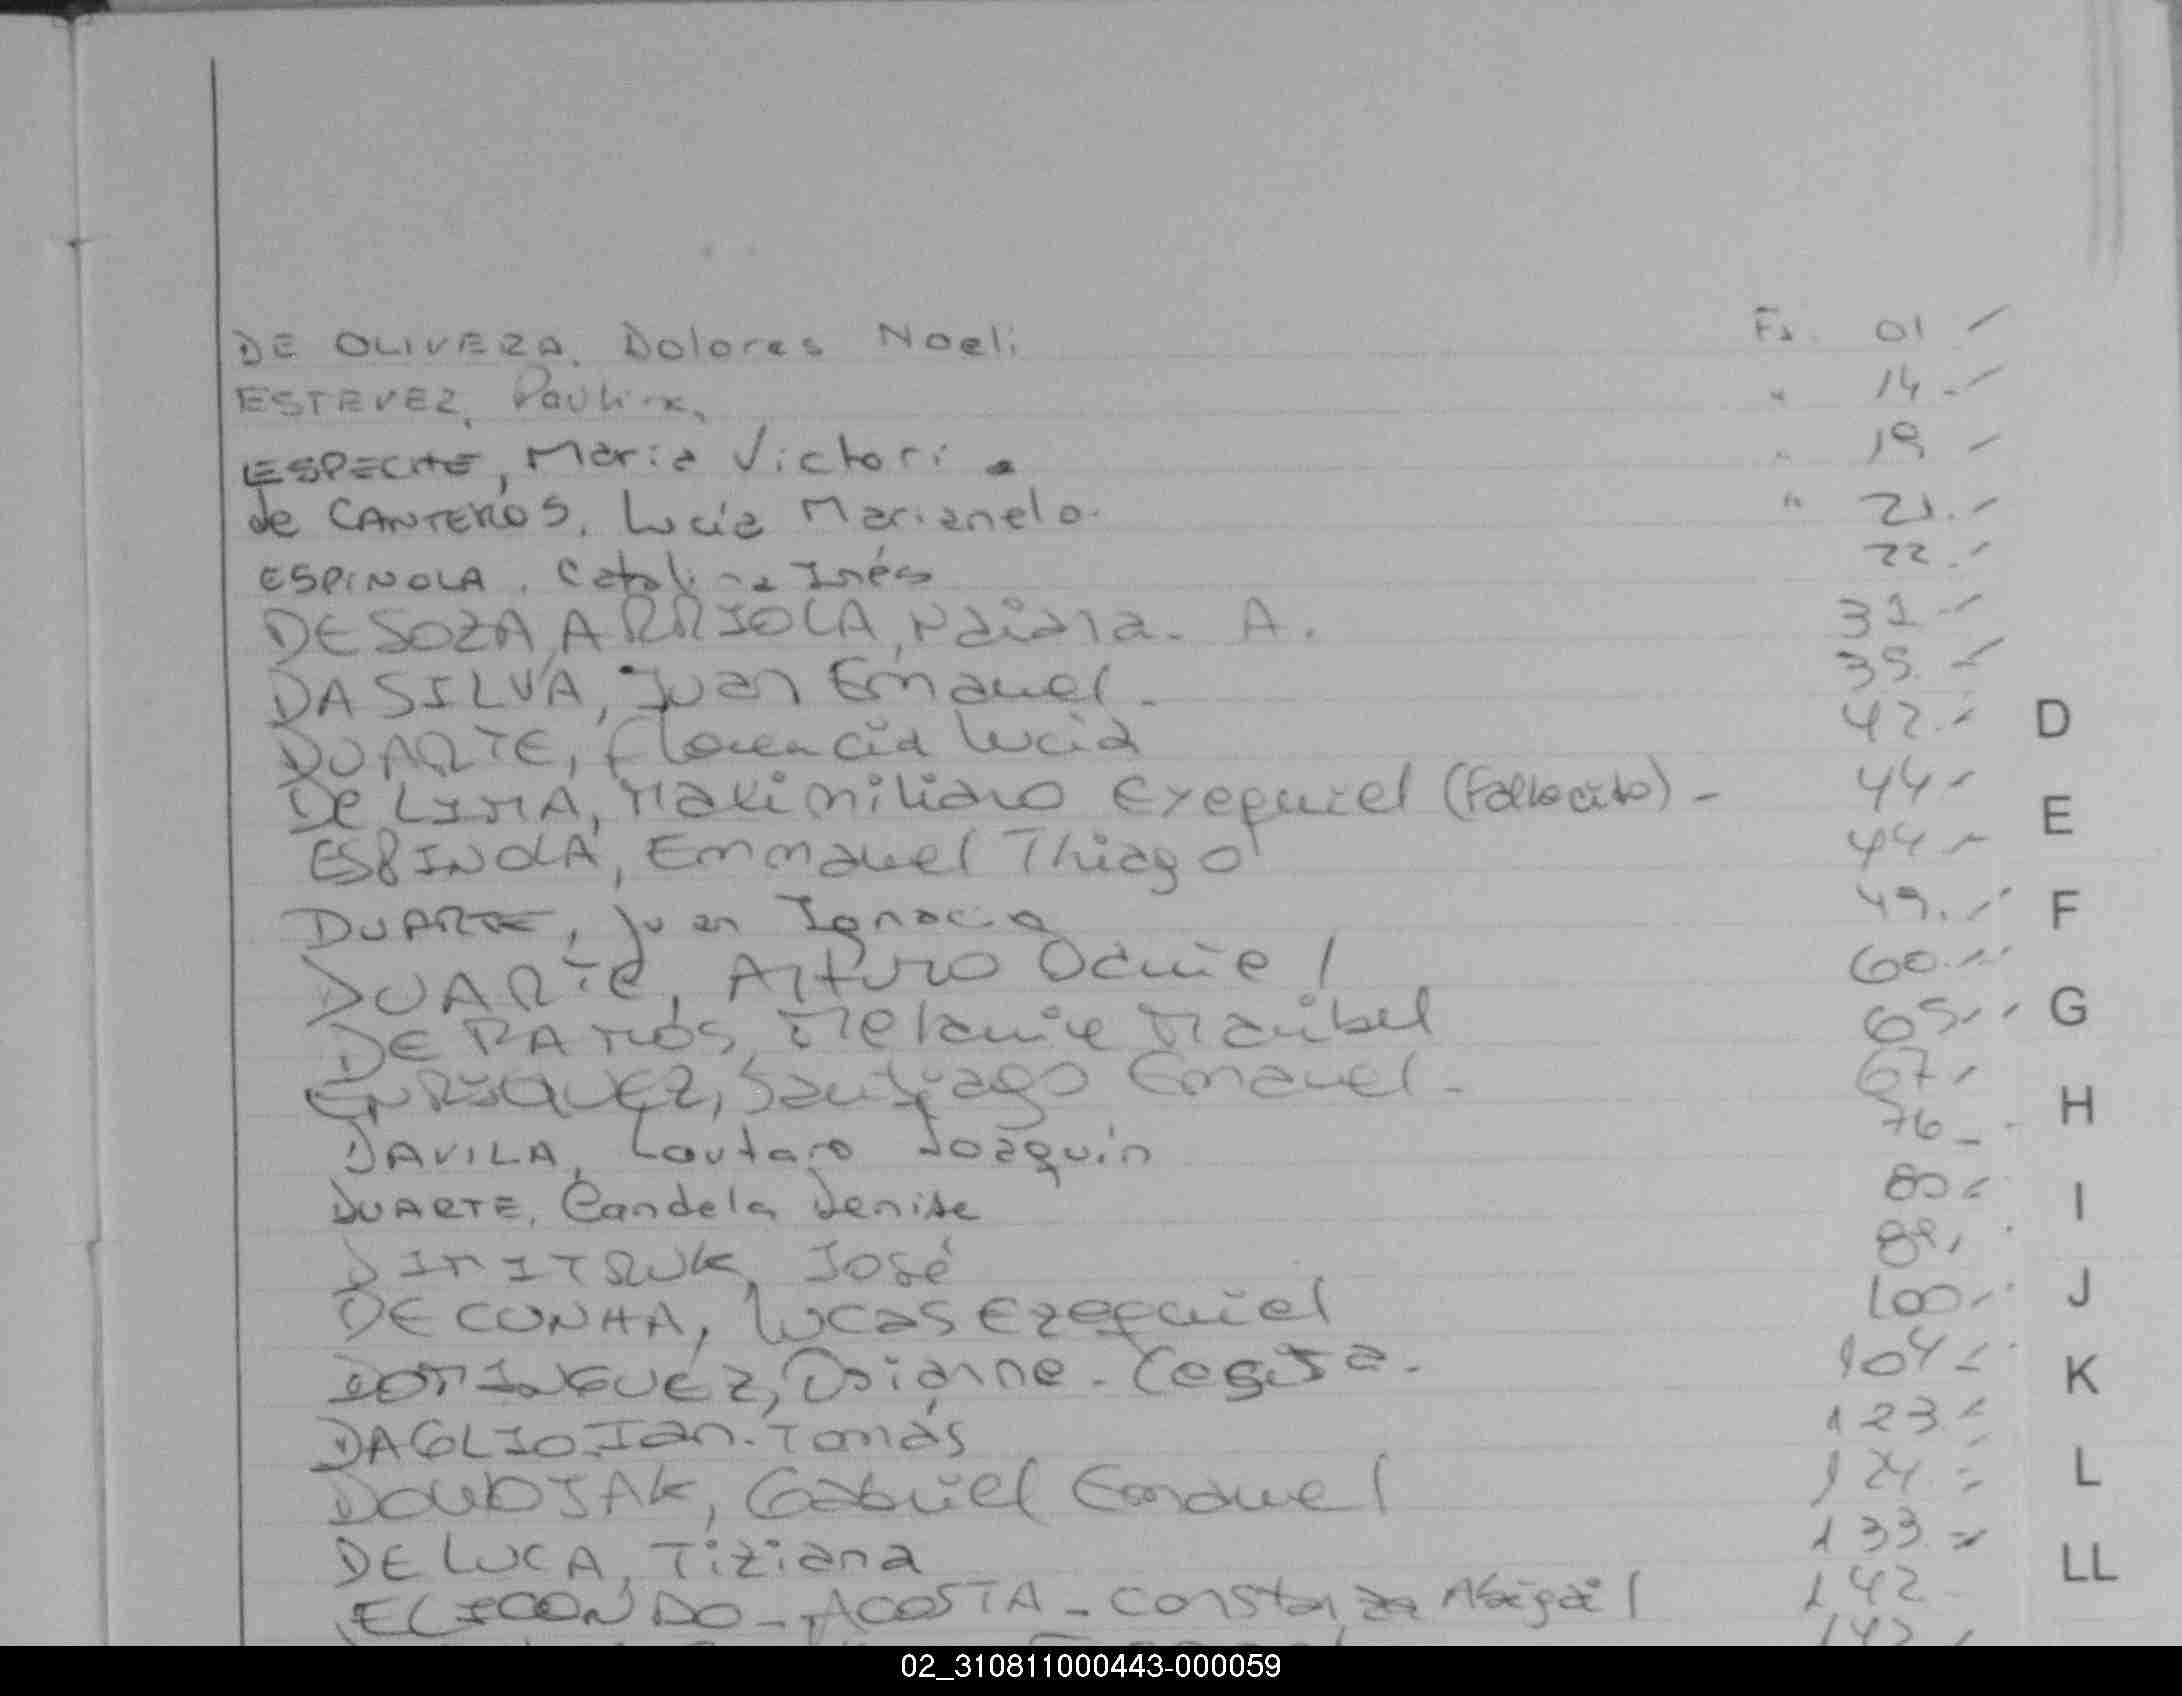 DE OLIVERA, Dolores Noeli Fs. 01
ESTEVEZ, Paulina, " 14.-
ESPECHE, María Victoria " 19 -
de CANTEROS, Lucía Marianela. " 21.-
ESPINOLA, Catalina Inés 22.-
DESOZA ARRIOLA, Naiara. A. 31 -
DASILVA, Juan Emanuel. 35. -
DUARTE, Florencia Lucia 42.-
De LIMA, Maximiliano Exequiel (Fallecido) - 44 -
ESPINOLA, Emmanuel Thiago 44 -
DUARTE, Juan Ignacio 49.-
DUARTE, Arturo Daniel 60.-
DE RAMOS, Melanie Maribel 65.-
ENRIQUEZ, Santiago Emanuel. 67 -
DAVILA, Lautaro Joaquín 76 -
DUARTE, Candela Denise 80 -
DIMITRUK, José
DE CUNHA, Lucas Ezequiel 100.-
DOMINGUEZ, 104 -
DAGLIO. Ian. Tomás 123 -
Gabriel Emanuel 124 -
DE LUCA, Tiziana 133 -
ELICONDO - ACOSTA - Constanza Abigail 142
D
E
F
G
H
I
J
K
L
LL
02_310811000443-000059